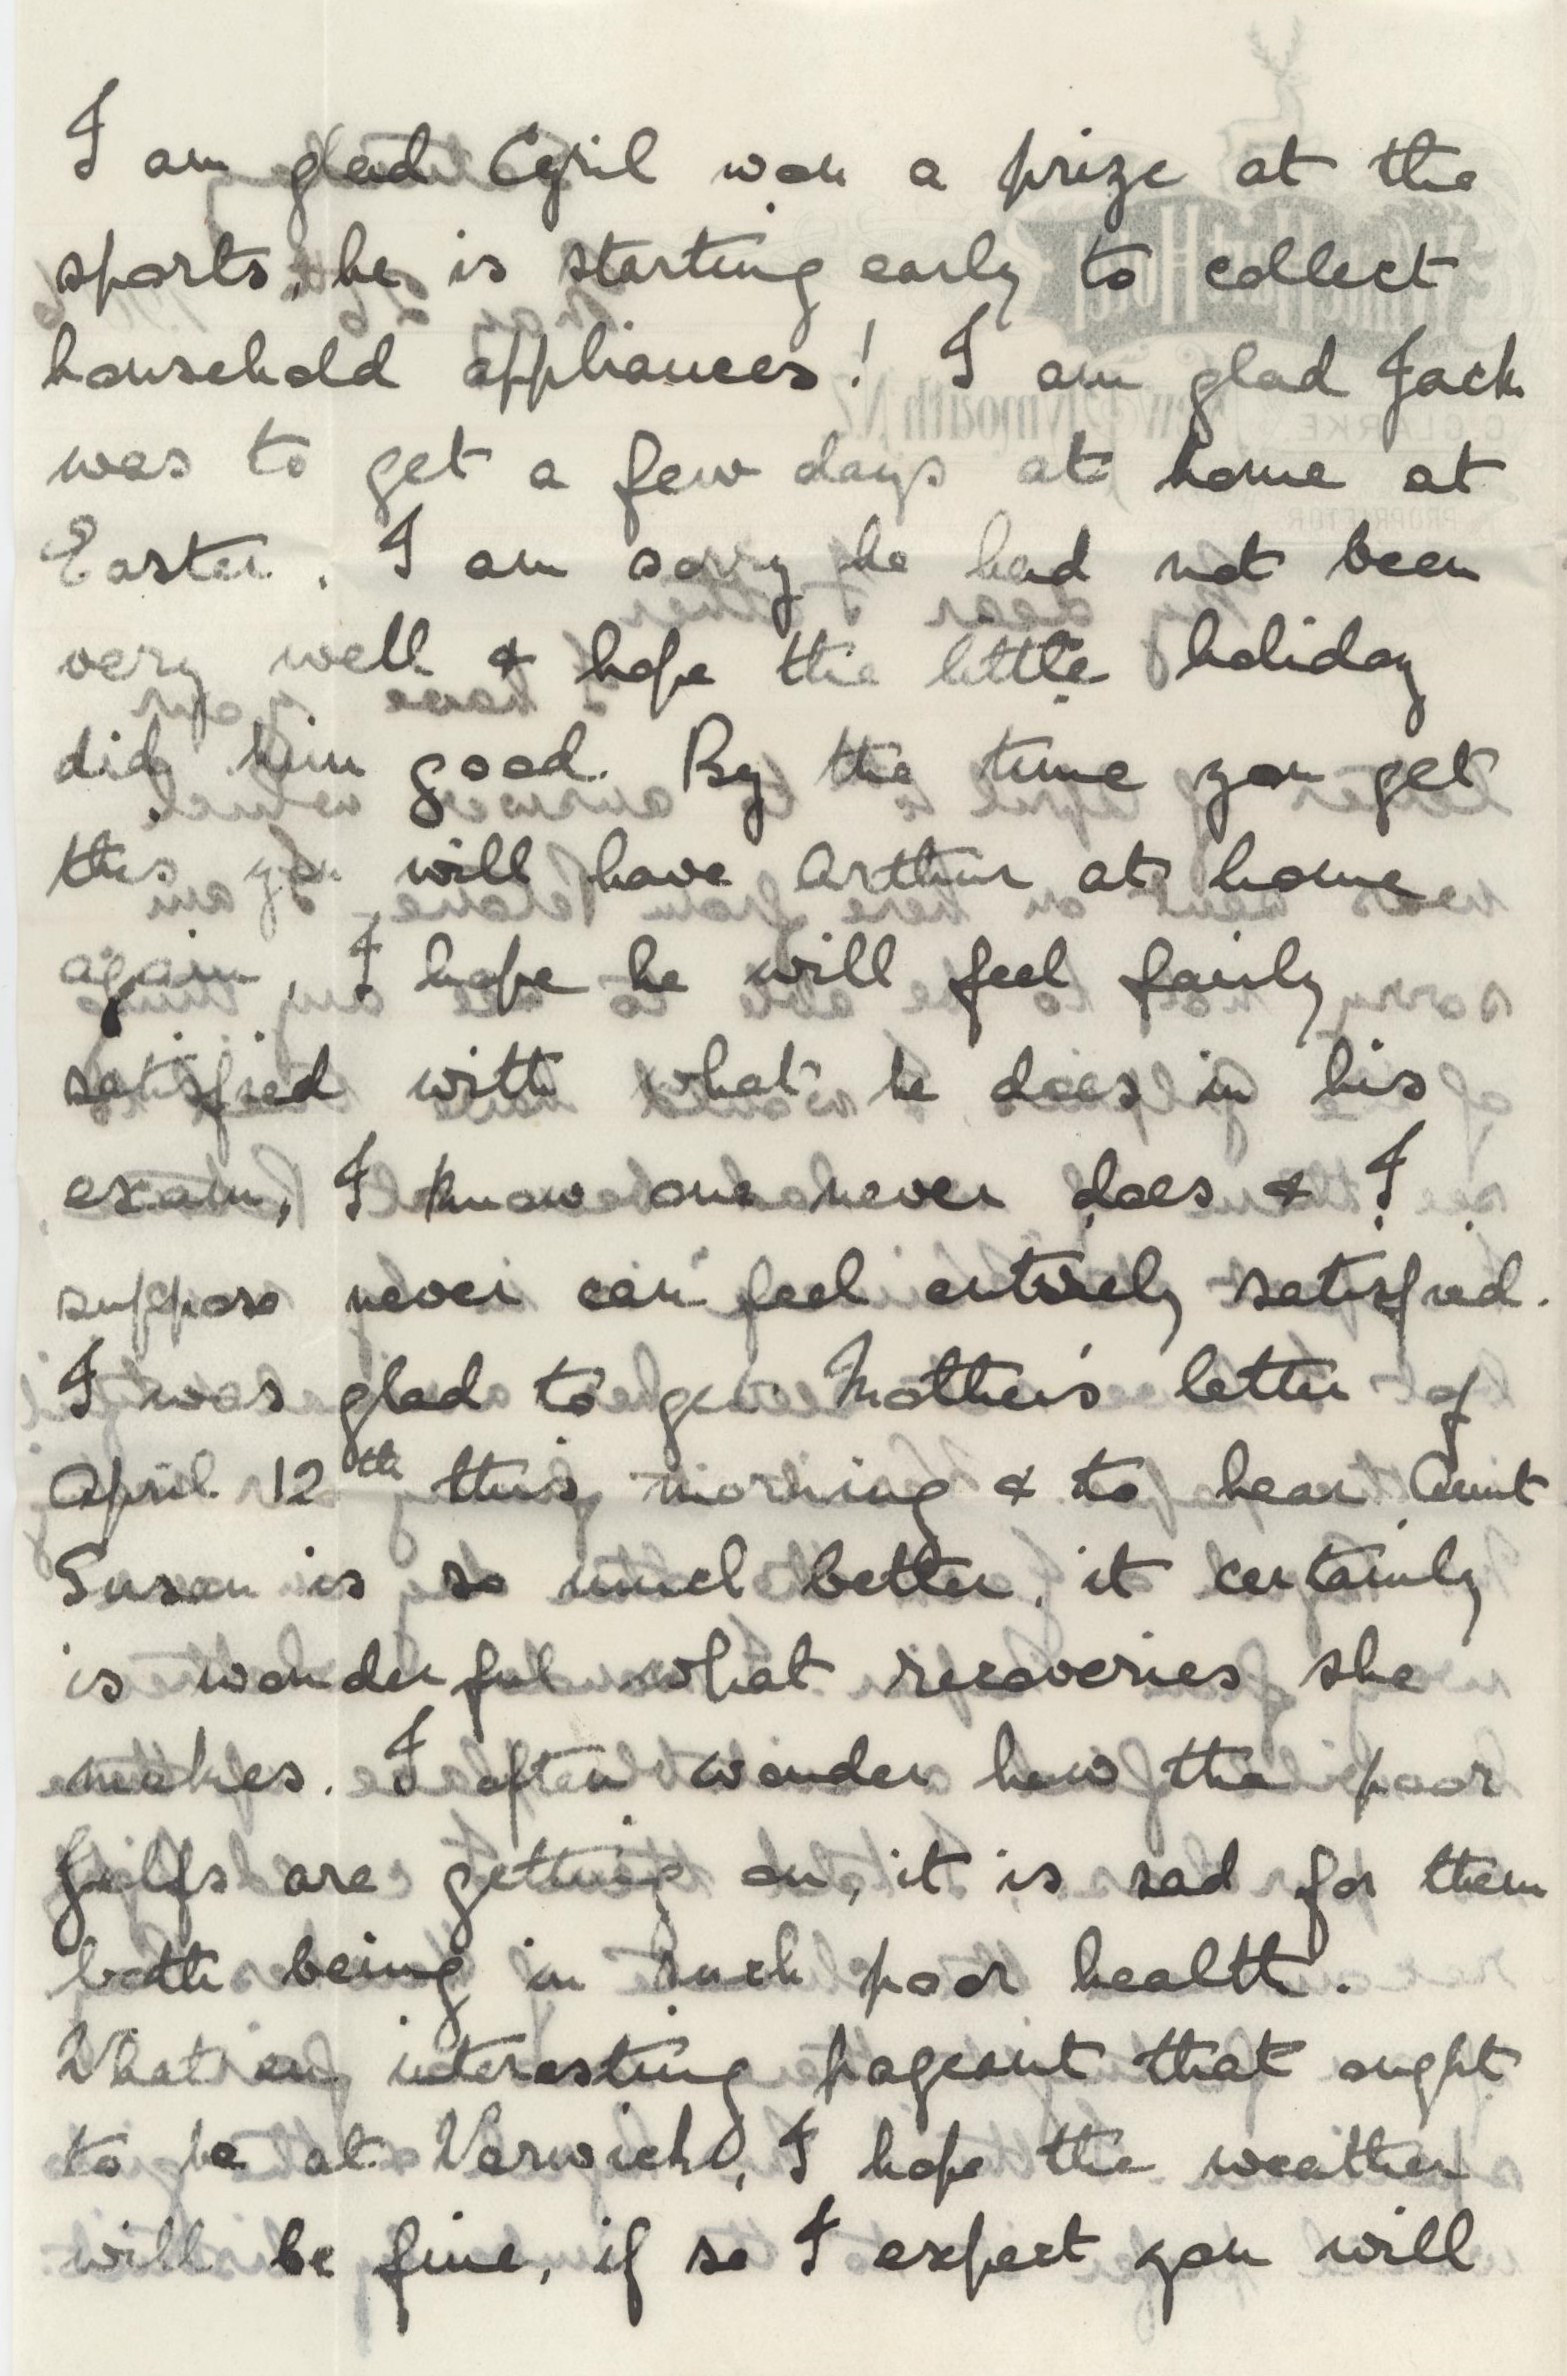 I am glad Cyril won a prize at the
sports, he is starting early to collect
household appliances! I am glad Jack
was to get a few days at home at
Easter. I am sorry he had not been
very well & hope the little holiday
did him good. By the time you get
this you will have Arthur at home
again, I hope he will feel fairly
satisfied with what he does in his
exam, I know one never does & I
suppose never can feel entirely satisfied.
I was glad to get Mother's letter of
April 12th this morning & to hear Aunt
Susan is so much better, it certainly
is wonderful what recoveries she
makes. I often wonder how the poor
are getting on, it is sad for them
both being in such poor health.
What an interesting pageant that ought
to be at Warwick, I hope the weather
will be fine, if so I expect you will